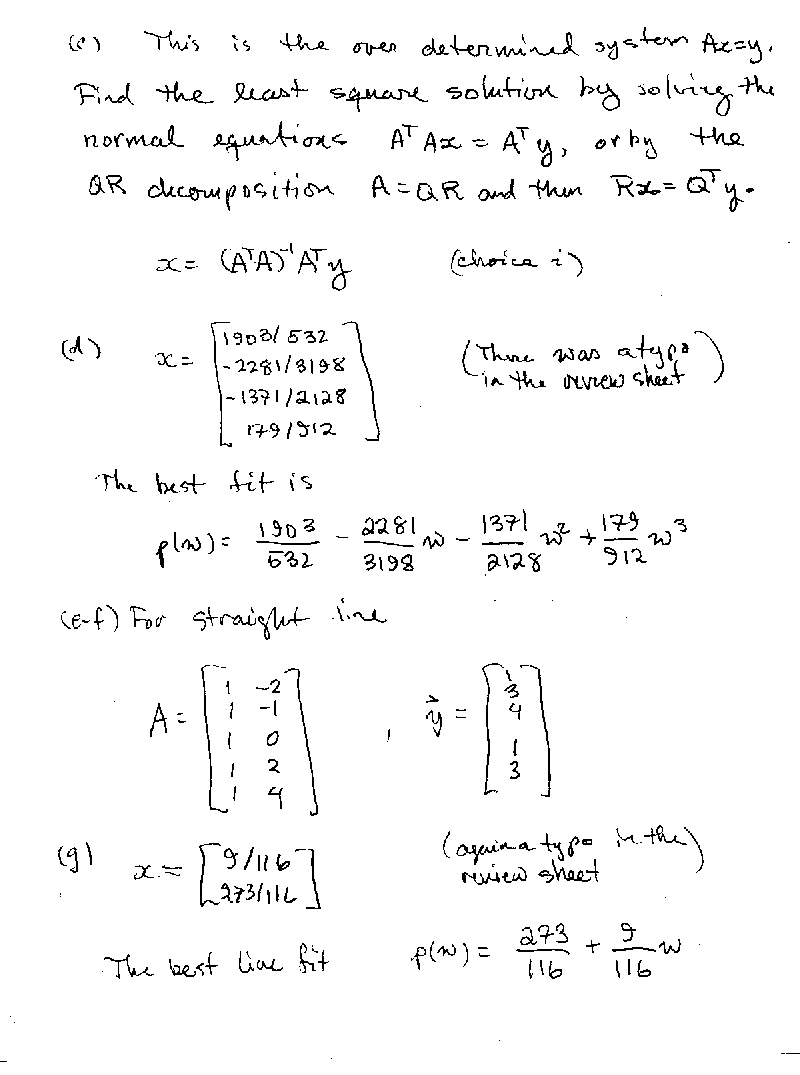 (c) This is the over determined system Ax=y.
Find the least square solution by solving the
normal equations AᵀAx = Aᵀy, or by the
QR decomposition A=QR and then Rx=Qᵀy.
x = (AᵀA)⁻¹Aᵀy (choice i)
(d) x = [1903/532
-2281/3198
-1371/2128
179/912] (There was a typo in the review sheet)
The best fit is
p(w) = 1903/532 - 2281/3198 w - 1371/2128 w² + 179/912 w³
(e-f) For straight line
A = [1 -2
1 -1
1 0
1 2
1 4] , y⃗ = [1
3
4
1
3]
(g) x = [9/116
273/116] (again a typo in the review sheet)
The best line fit p(w) = 273/116 + 9/116 w